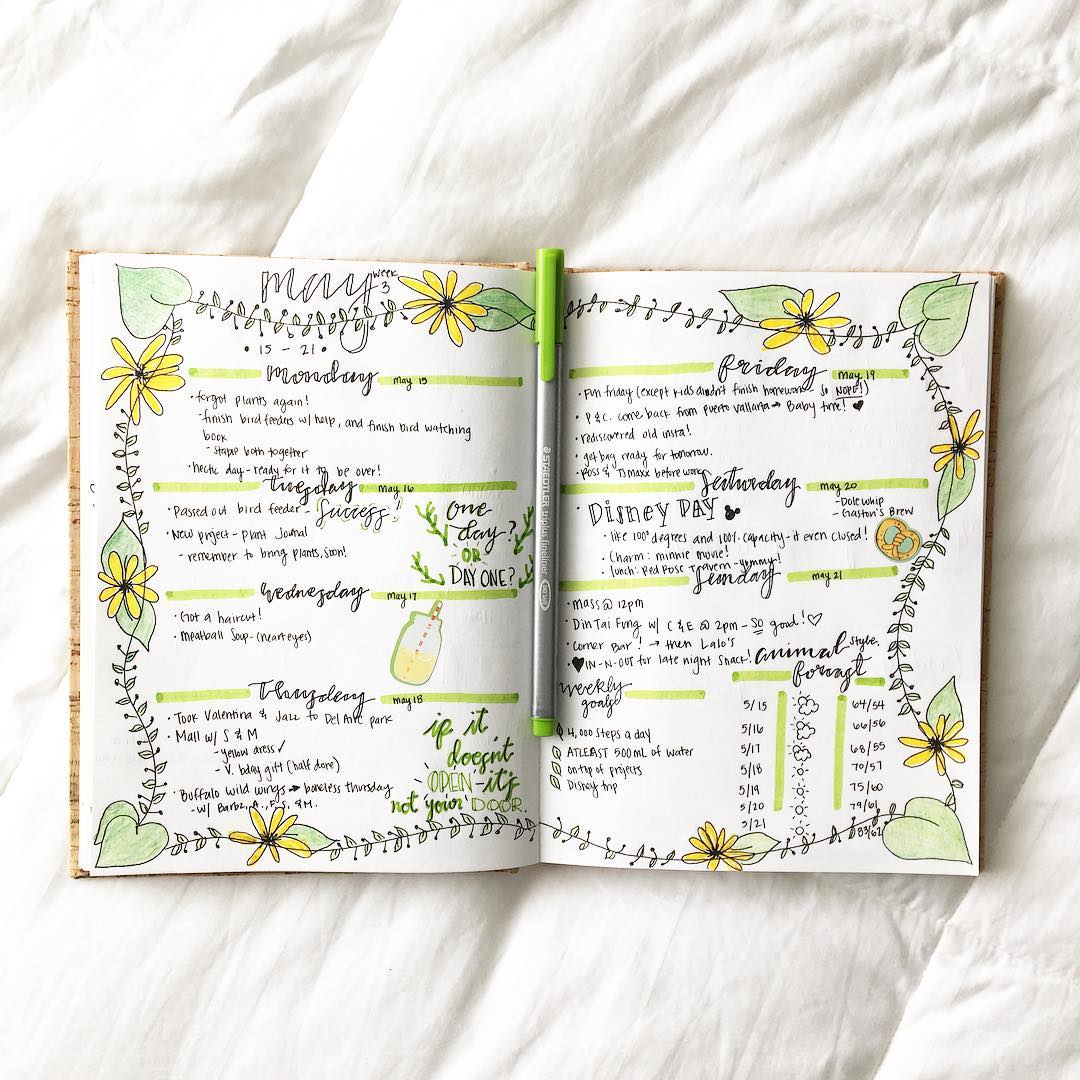 may week 3
• 15 - 21 •
monday may 15
• forgot plants again!
- finish bird feeders w/ help, and finish bird watching
book
- staple both together
• hectic day - ready for it to be over!
tuesday may 16
• Passed out bird feeder - Success!
• New project - plant journal
- remember to bring plants, soon!
one
day?
OR
DAY ONE?
wednesday may 17
• Got a haircut!
• Meatball Soup - (heart eyes)
thursday may 18
• Took Valentina & Jazz to Del Amo park
• Mall w/ S & M
- yellow dress ✓
- V. bday gift (half done)
• Buffalo wild wings → boneless thursday
- w/ Barbz, A., F, S, & M.
if it
doesn't
OPEN - it's
not your DOOR.
STAEDTLER triplus fineliner
friday may 19
• Fun friday (except kids didn't finish homework so NOPE!)
• P & C. come back from Puerto Vallarta → Baby time! ♥
• rediscovered old insta!
• get bag ready for tomorrow.
• Ross & TJ maxx before work
Saturday may 20
• DISNEY DAY
- Dole whip
- Gaston's Brew
• like 100 degrees and 100% capacity - it even closed!
• Charm: minnie movie!
• lunch: Red Rose Tavern - yummy!
Sunday may 21
• mass @ 12pm
• Din Tai Fung w/ C & E @ 2pm - SO good! ♡
• Corner Bar! → then Lalo's
• ♥ IN-N-OUT for late night snack!
animal style.
format
weekly
goals
4,000 steps a day
ATLEAST 500 mL of water
on top of projects
Disney trip
5/15 64/54
5/16 66/56
5/17 68/55
5/18 70/57
5/19 75/60
5/20 79/61
5/21 83/62